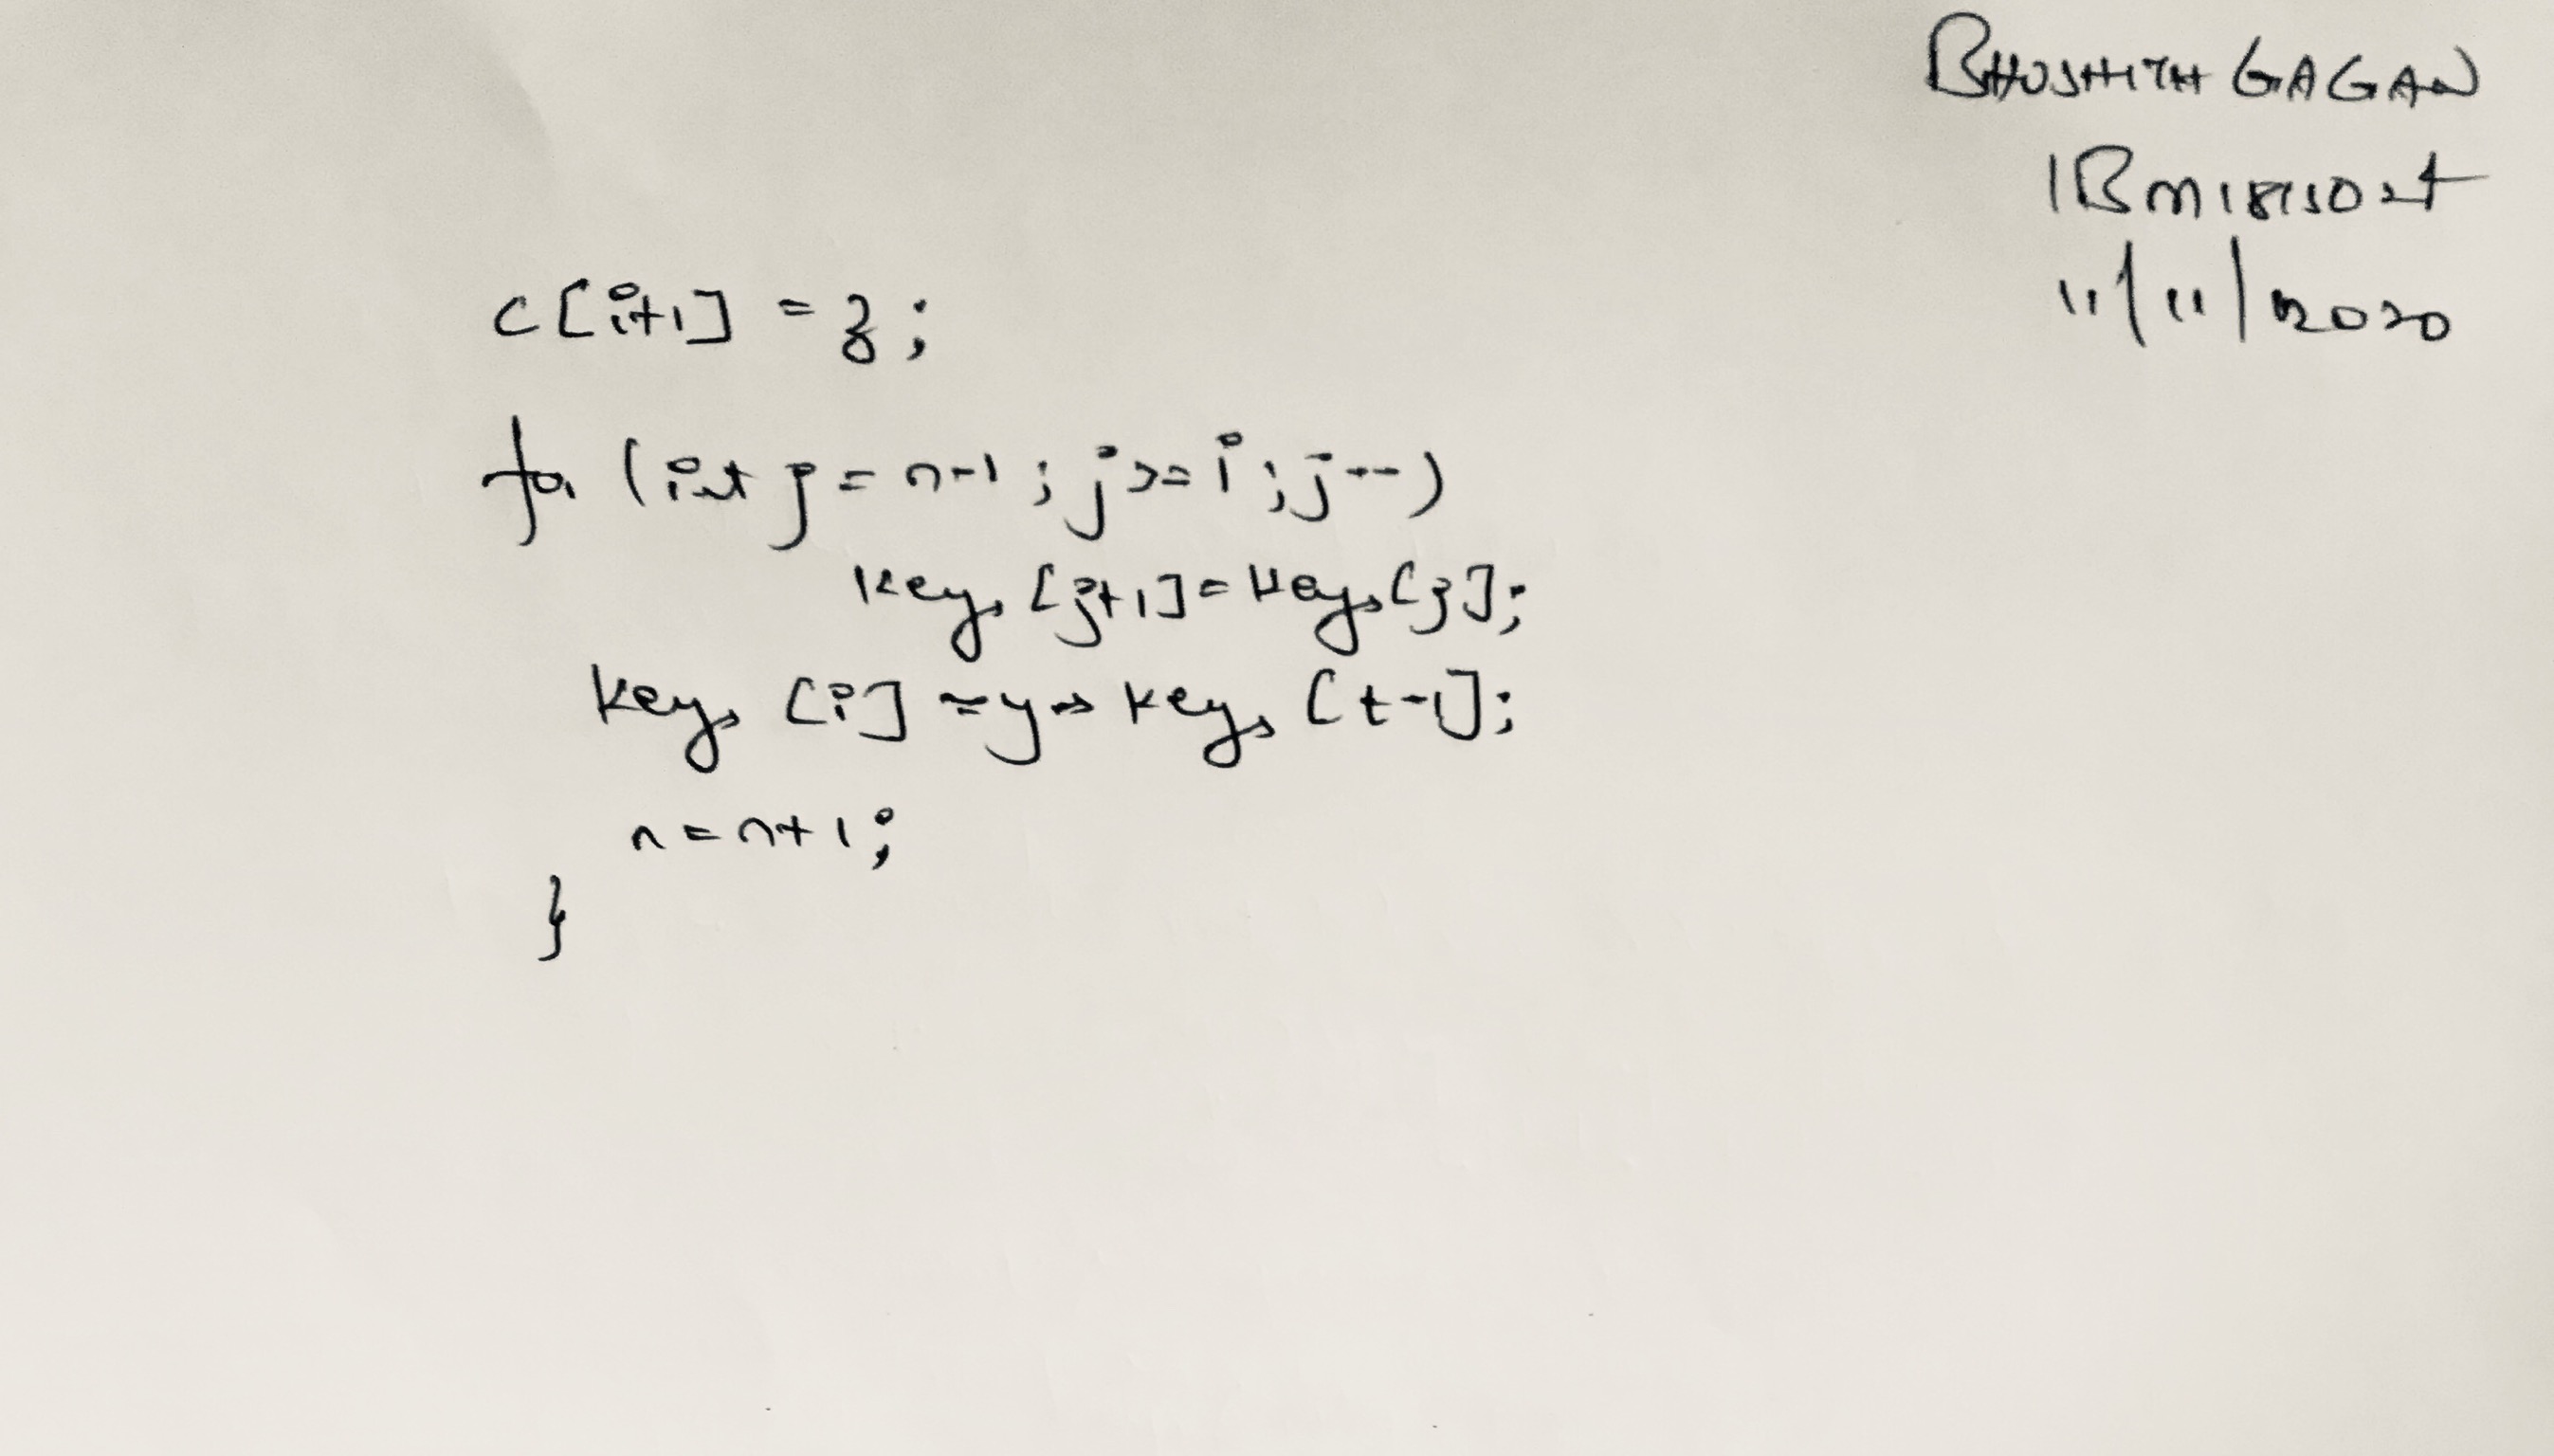 BHUSHITH GAGAN
1BM18IS024
11/11/2020
c[i+1] = z;
for (int j = n-1; j>=i; j--)
keys[j+1] = keys[j];
keys[i] = y→keys[t-1];
n = n+1;
}